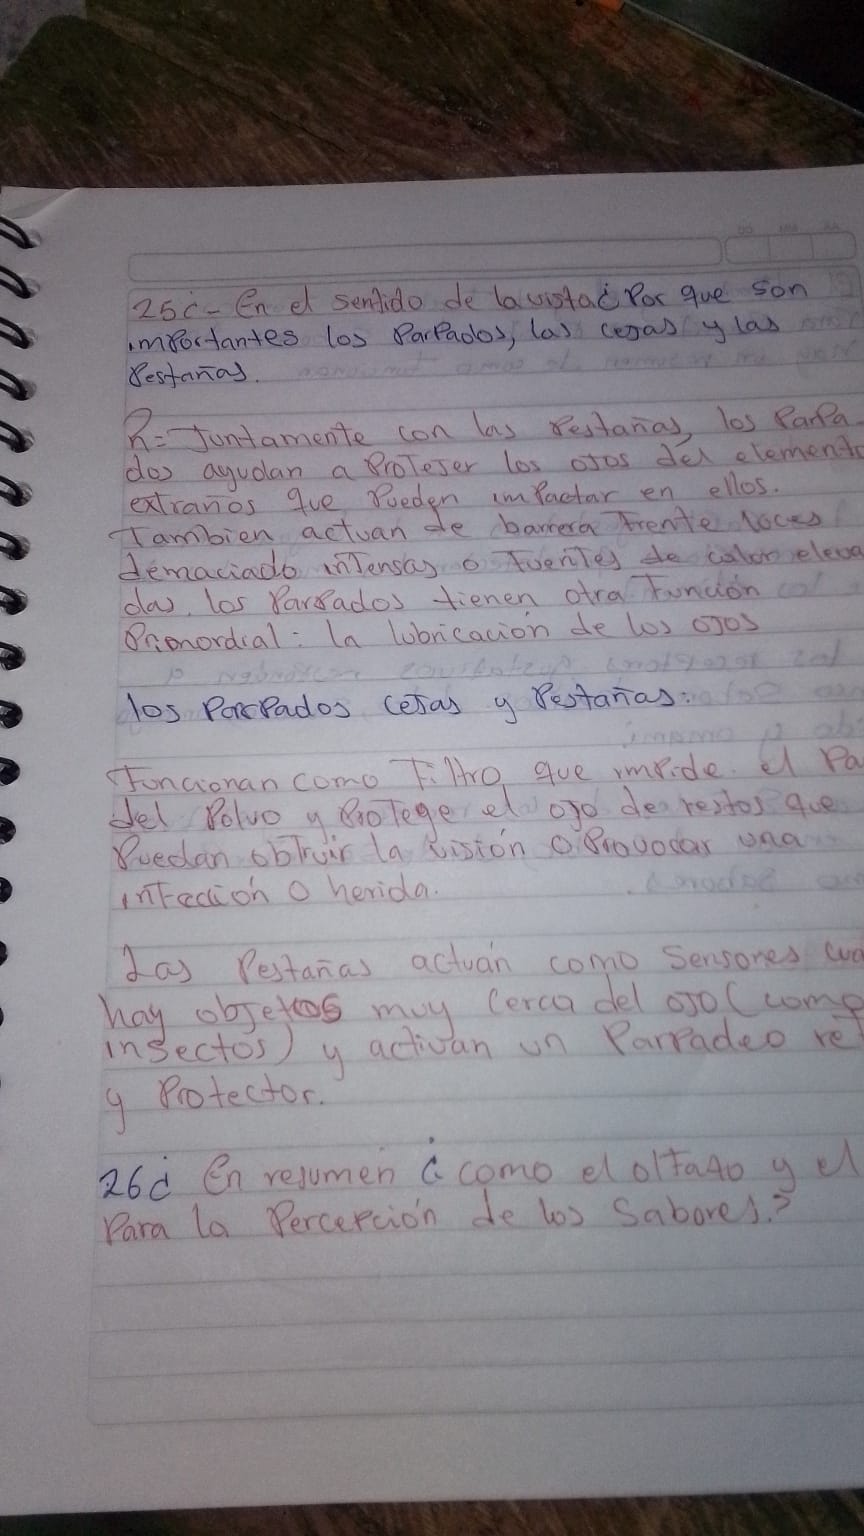 25¿- En el sentido de la vista ¿Por que son
importantes los Parpados, las cejas y las
Pestañas.
R= Juntamente con las Pestañas, los Parpa
dos ayudan a ProteJer los ojos del elemento
extraños que Pueden impactar en ellos.
Tambien actuan de barrera Frente luces
demaciado intensas o Fuentes de calor eleva
das, los Parpados tienen otra Función
Primordial: la lubricación de los ojos
los Parpados cejas y Pestañas:
Funcionan como Filtro que impide el Pa
del Polvo y Protege el ojo de restos que
Puedan obtruir la visión o Provocar una
infección o herida.
Las Pestañas actuan como Sensores cua
hay objetos muy Cerca del ojo (como
insectos) y activan un Parpadeo re
y Protector.
26¿ En resumen ¿ como el olfato y el
Para la Percepción de los Sabores.?